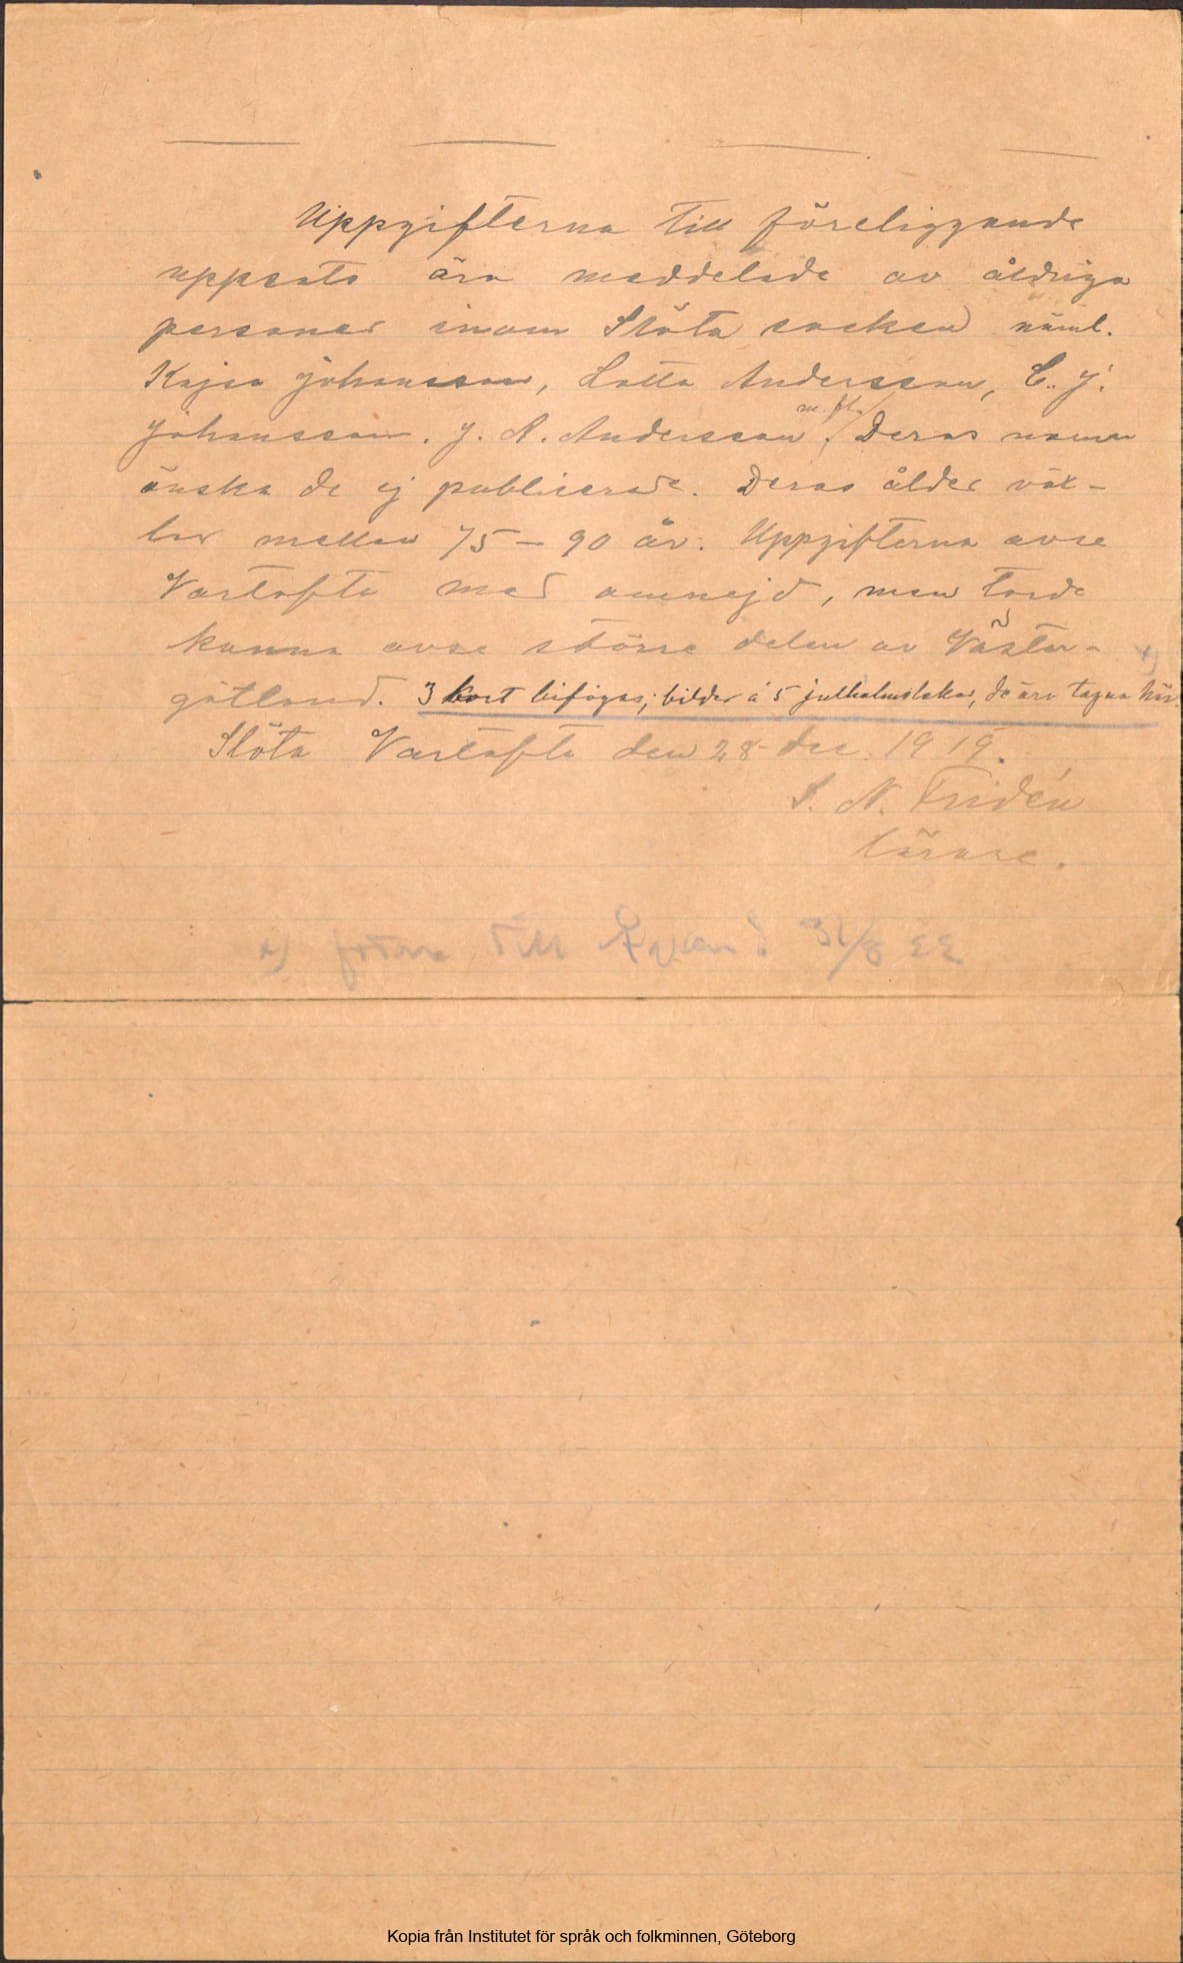 Uppgifterna till föreliggande
uppsats äro meddelade av åldriga
personer inom Slöta socken näml.
Kajsa Johansson, Lotta Andersson, C. J.
Johansson. J. A. Andersson m. fl. Deras namn
önska de ej publicerade. Deras ålder väx-
lar mellan 75 – 90 år. Uppgifterna avse
Vartofta med omnejd, men torde
kunna avse större delen av Väster-
götland. 3 kort bifogas; bilder à 5 julhalmslekar, de äro tagna här.
Slöta Vartofta den 28 dec. 1919.
S. N. Fridén
lärare.
x) till 31/8 22
Kopia från Institutet för språk och folkminnen, Göteborg